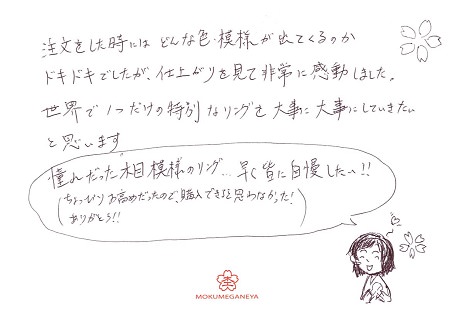 注文をした時には どんな色・模様が出てくるのか
ドキドキでしたが、仕上がりを見て非常に感動しました。
世界で1つだけの特別なリングを大事に大事にしていきたい
と思います
憧れだった木目模様のリング… 早く皆に自慢したい!!
(ちょっぴりお高めだったので、購入できると思わなかった!
ありがとう!!)
MOKUMEGANEYA